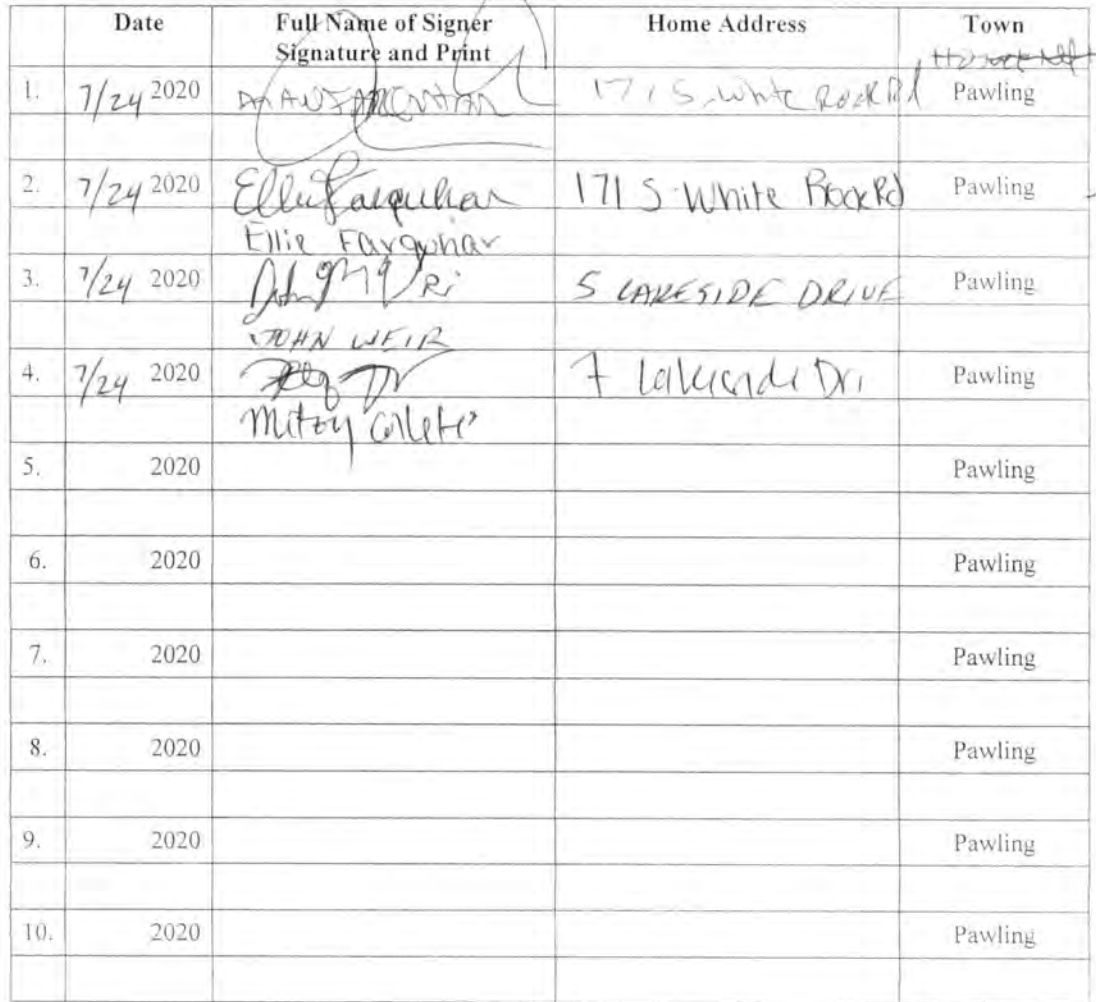 Date Full Name of Signer Signature and Print Home Address Town
1. 7/24 2020 171 S. White Rock Rd Pawling
2. 7/24 2020 Ellie Farquhar 171 S. White Rock Rd Pawling
Ellie Farquhar
3. 7/24 2020 5 LAKESIDE DRIVE Pawling
JOHN WEIR
4. 7/24 2020 7 Lakeside Dri Pawling
5. 2020 Pawling
6. 2020 Pawling
7. 2020 Pawling
8. 2020 Pawling
9. 2020 Pawling
10. 2020 Pawling